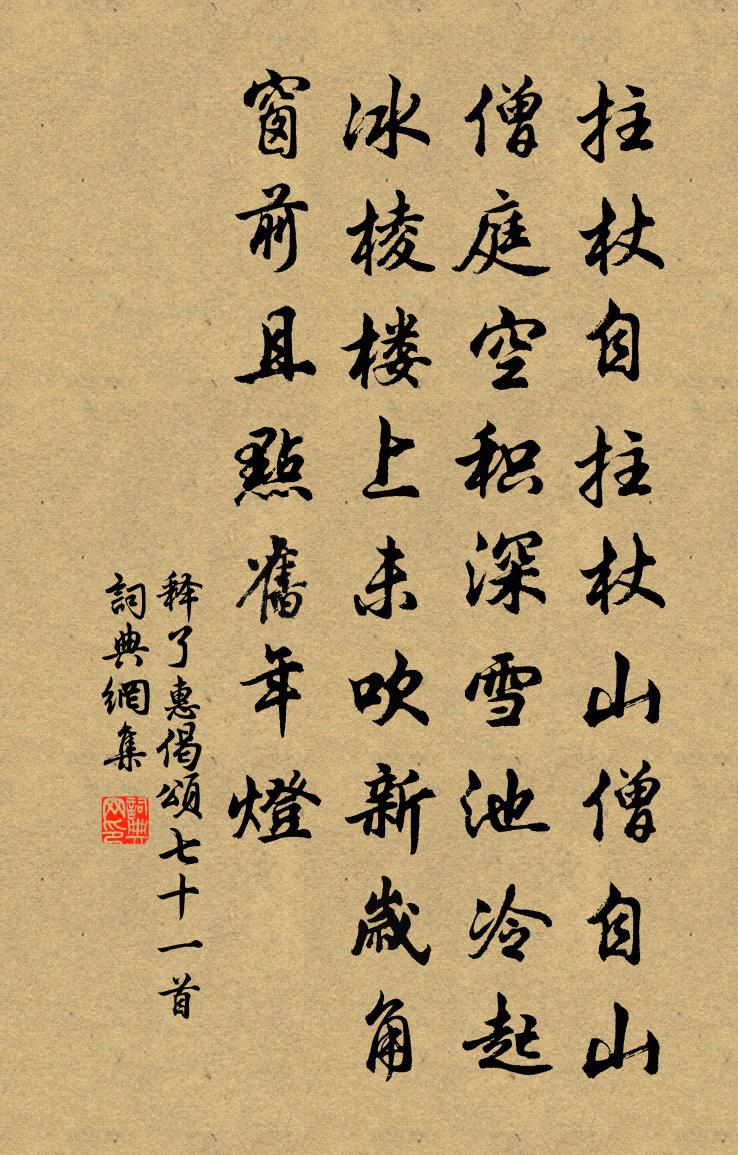 拄杖自拄杖山僧自山
僧庭空积深雪池冷起
冰棱楼上未吹新歲角
窗前且點舊年燈
释了惠偈頌七十一首
詞典網集
詞典网印